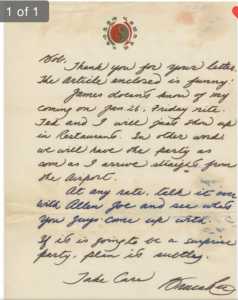 1 of 1
Bob,
Thank you for your letter
The Article enclosed is funny.
James doesn't know of my
coming on Jan. 26, Friday nite.
Ted and I will just show up
in Restaurant. In other word
we will have the party as
soon as I arrive straight from
the Airport.
At any rate, talk it over
with Allen Joe and see what
you guys come up with.
If it is going to be a surprise
party, plan it subtley.
Take Care
Bruce Lee